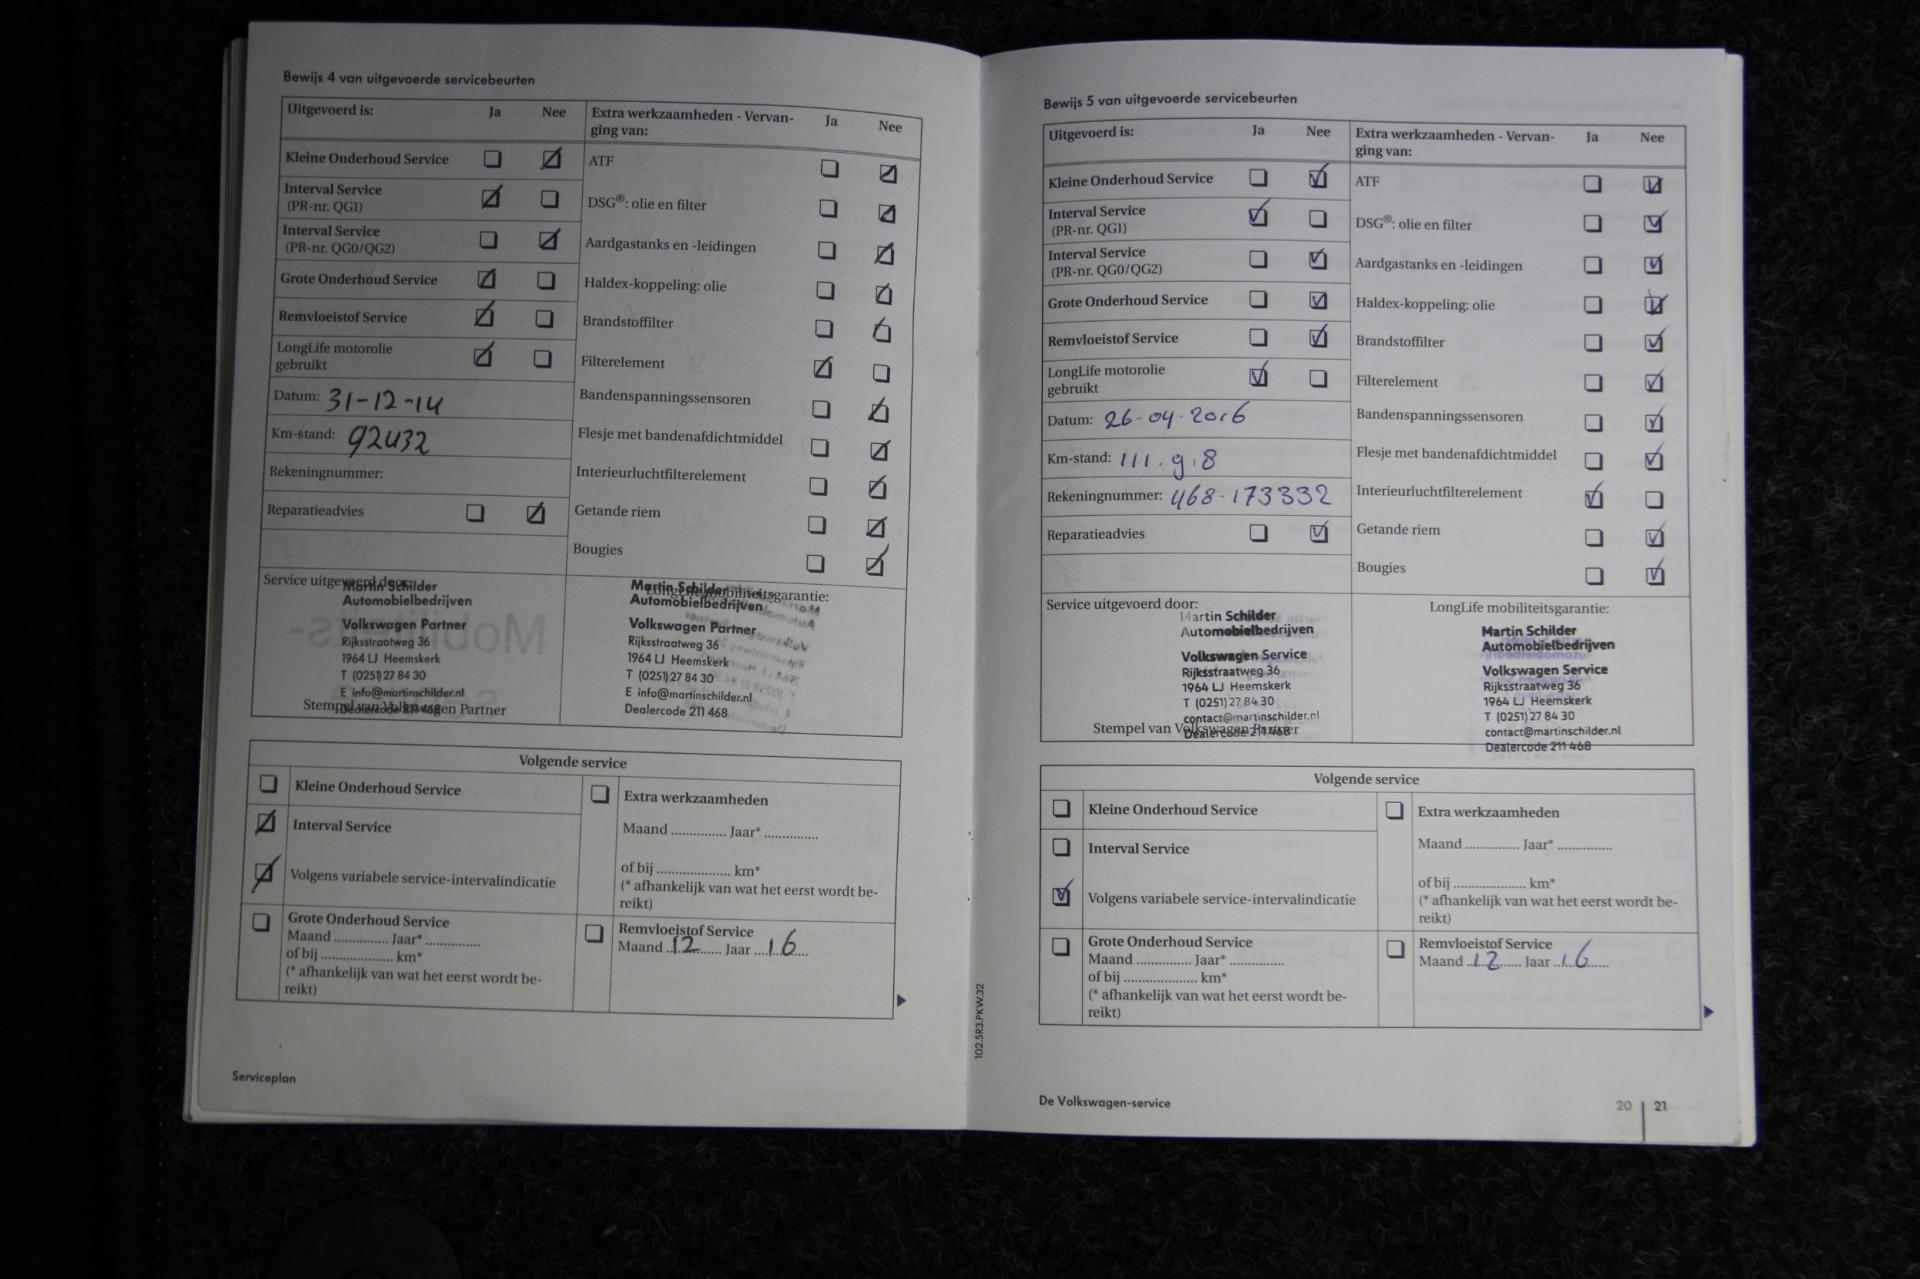 Bewijs 4 van uitgevoerde servicebeurten
Uitgevoerd is: Ja Nee
Kleine Onderhoud Service
Interval Service
(PR-nr. QG1)
Interval Service
(PR-nr. QG0/QG2)
Grote Onderhoud Service
Remvloeistof Service
LongLife motorolie
gebruikt
Datum: 31-12-14
Km-stand: 92432
Rekeningnummer:
Reparatieadvies
Extra werkzaamheden - Vervan-
ging van: Ja Nee
ATF
DSG®: olie en filter
Aardgastanks en -leidingen
Haldex-koppeling: olie
Brandstoffilter
Filterelement
Bandenspanningssensoren
Flesje met bandenafdichtmiddel
Interieurluchtfilterelement
Getande riem
Bougies
Service uitgevoerd door:
Martin Schilder
Automobielbedrijven
Volkswagen Partner
Rijksstraatweg 36
1964 LJ Heemskerk
T (0251) 27 84 30
E info@martinschilder.nl
Dealercode 211 468
Stempel van Volkswagen Partner
LongLife mobiliteitsgarantie:
Martin Schilder
Automobielbedrijven
Volkswagen Partner
Rijksstraatweg 36
1964 LJ Heemskerk
T (0251) 27 84 30
E info@martinschilder.nl
Dealercode 211 468
Volgende service
Kleine Onderhoud Service
Interval Service
Volgens variabele service-intervalindicatie
Grote Onderhoud Service
Maand ............... Jaar* ...............
of bij .................... km*
(* afhankelijk van wat het eerst wordt be-
reikt)
Extra werkzaamheden
Maand ............... Jaar* ...............
of bij .................... km*
(* afhankelijk van wat het eerst wordt be-
reikt)
Remvloeistof Service
Maand 12 Jaar 16
Serviceplan
102.5R3.PKW.32
Bewijs 5 van uitgevoerde servicebeurten
Uitgevoerd is: Ja Nee
Kleine Onderhoud Service
Interval Service
(PR-nr. QG1)
Interval Service
(PR-nr. QG0/QG2)
Grote Onderhoud Service
Remvloeistof Service
LongLife motorolie
gebruikt
Datum: 26-04-2016
Km-stand: 111.918
Rekeningnummer: 468-173332
Reparatieadvies
Extra werkzaamheden - Vervan-
ging van: Ja Nee
ATF
DSG®: olie en filter
Aardgastanks en -leidingen
Haldex-koppeling: olie
Brandstoffilter
Filterelement
Bandenspanningssensoren
Flesje met bandenafdichtmiddel
Interieurluchtfilterelement
Getande riem
Bougies
Service uitgevoerd door:
Martin Schilder
Automobielbedrijven
Volkswagen Service
Rijksstraatweg 36
1964 LJ Heemskerk
T (0251) 27 84 30
contact@martinschilder.nl
Dealercode 211 468
Stempel van Volkswagen Partner
LongLife mobiliteitsgarantie:
Martin Schilder
Automobielbedrijven
Volkswagen Service
Rijksstraatweg 36
1964 LJ Heemskerk
T (0251) 27 84 30
contact@martinschilder.nl
Dealercode 211 468
Volgende service
Kleine Onderhoud Service
Interval Service
Volgens variabele service-intervalindicatie
Grote Onderhoud Service
Maand ............... Jaar* ...............
of bij .................... km*
(* afhankelijk van wat het eerst wordt be-
reikt)
Extra werkzaamheden
Maand ............... Jaar* ...............
of bij .................... km*
(* afhankelijk van wat het eerst wordt be-
reikt)
Remvloeistof Service
Maand 12 Jaar 16
De Volkswagen-service
20 21